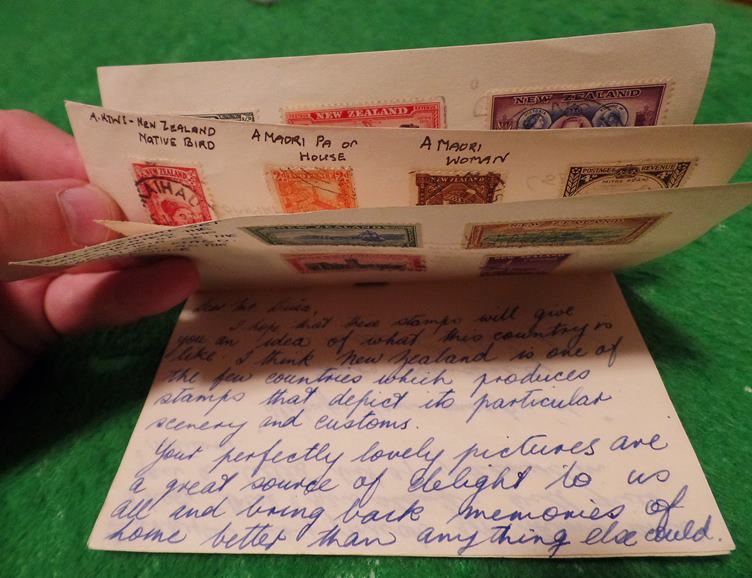 NEW ZEALAND
NEW ZEALAND
A. KIWI - NEW ZEALAND
NATIVE BIRD
A MAORI PA OR
HOUSE
A MAORI
WOMAN
NEW ZEALAND
2D
2D
NEW ZEALAND
POSTAGE & REVENUE
MITRE PEAK
NEW ZEALAND
NEW ZEALAND
Dear Mr
I hope that these stamps will give
you an idea of what this country is
like. I think New Zealand is one of
the few countries which produces
stamps that depict its particular
scenery and customs.
Your perfectly lovely pictures are
a great source of delight to us
all and bring back memories of
home better than anything else could.